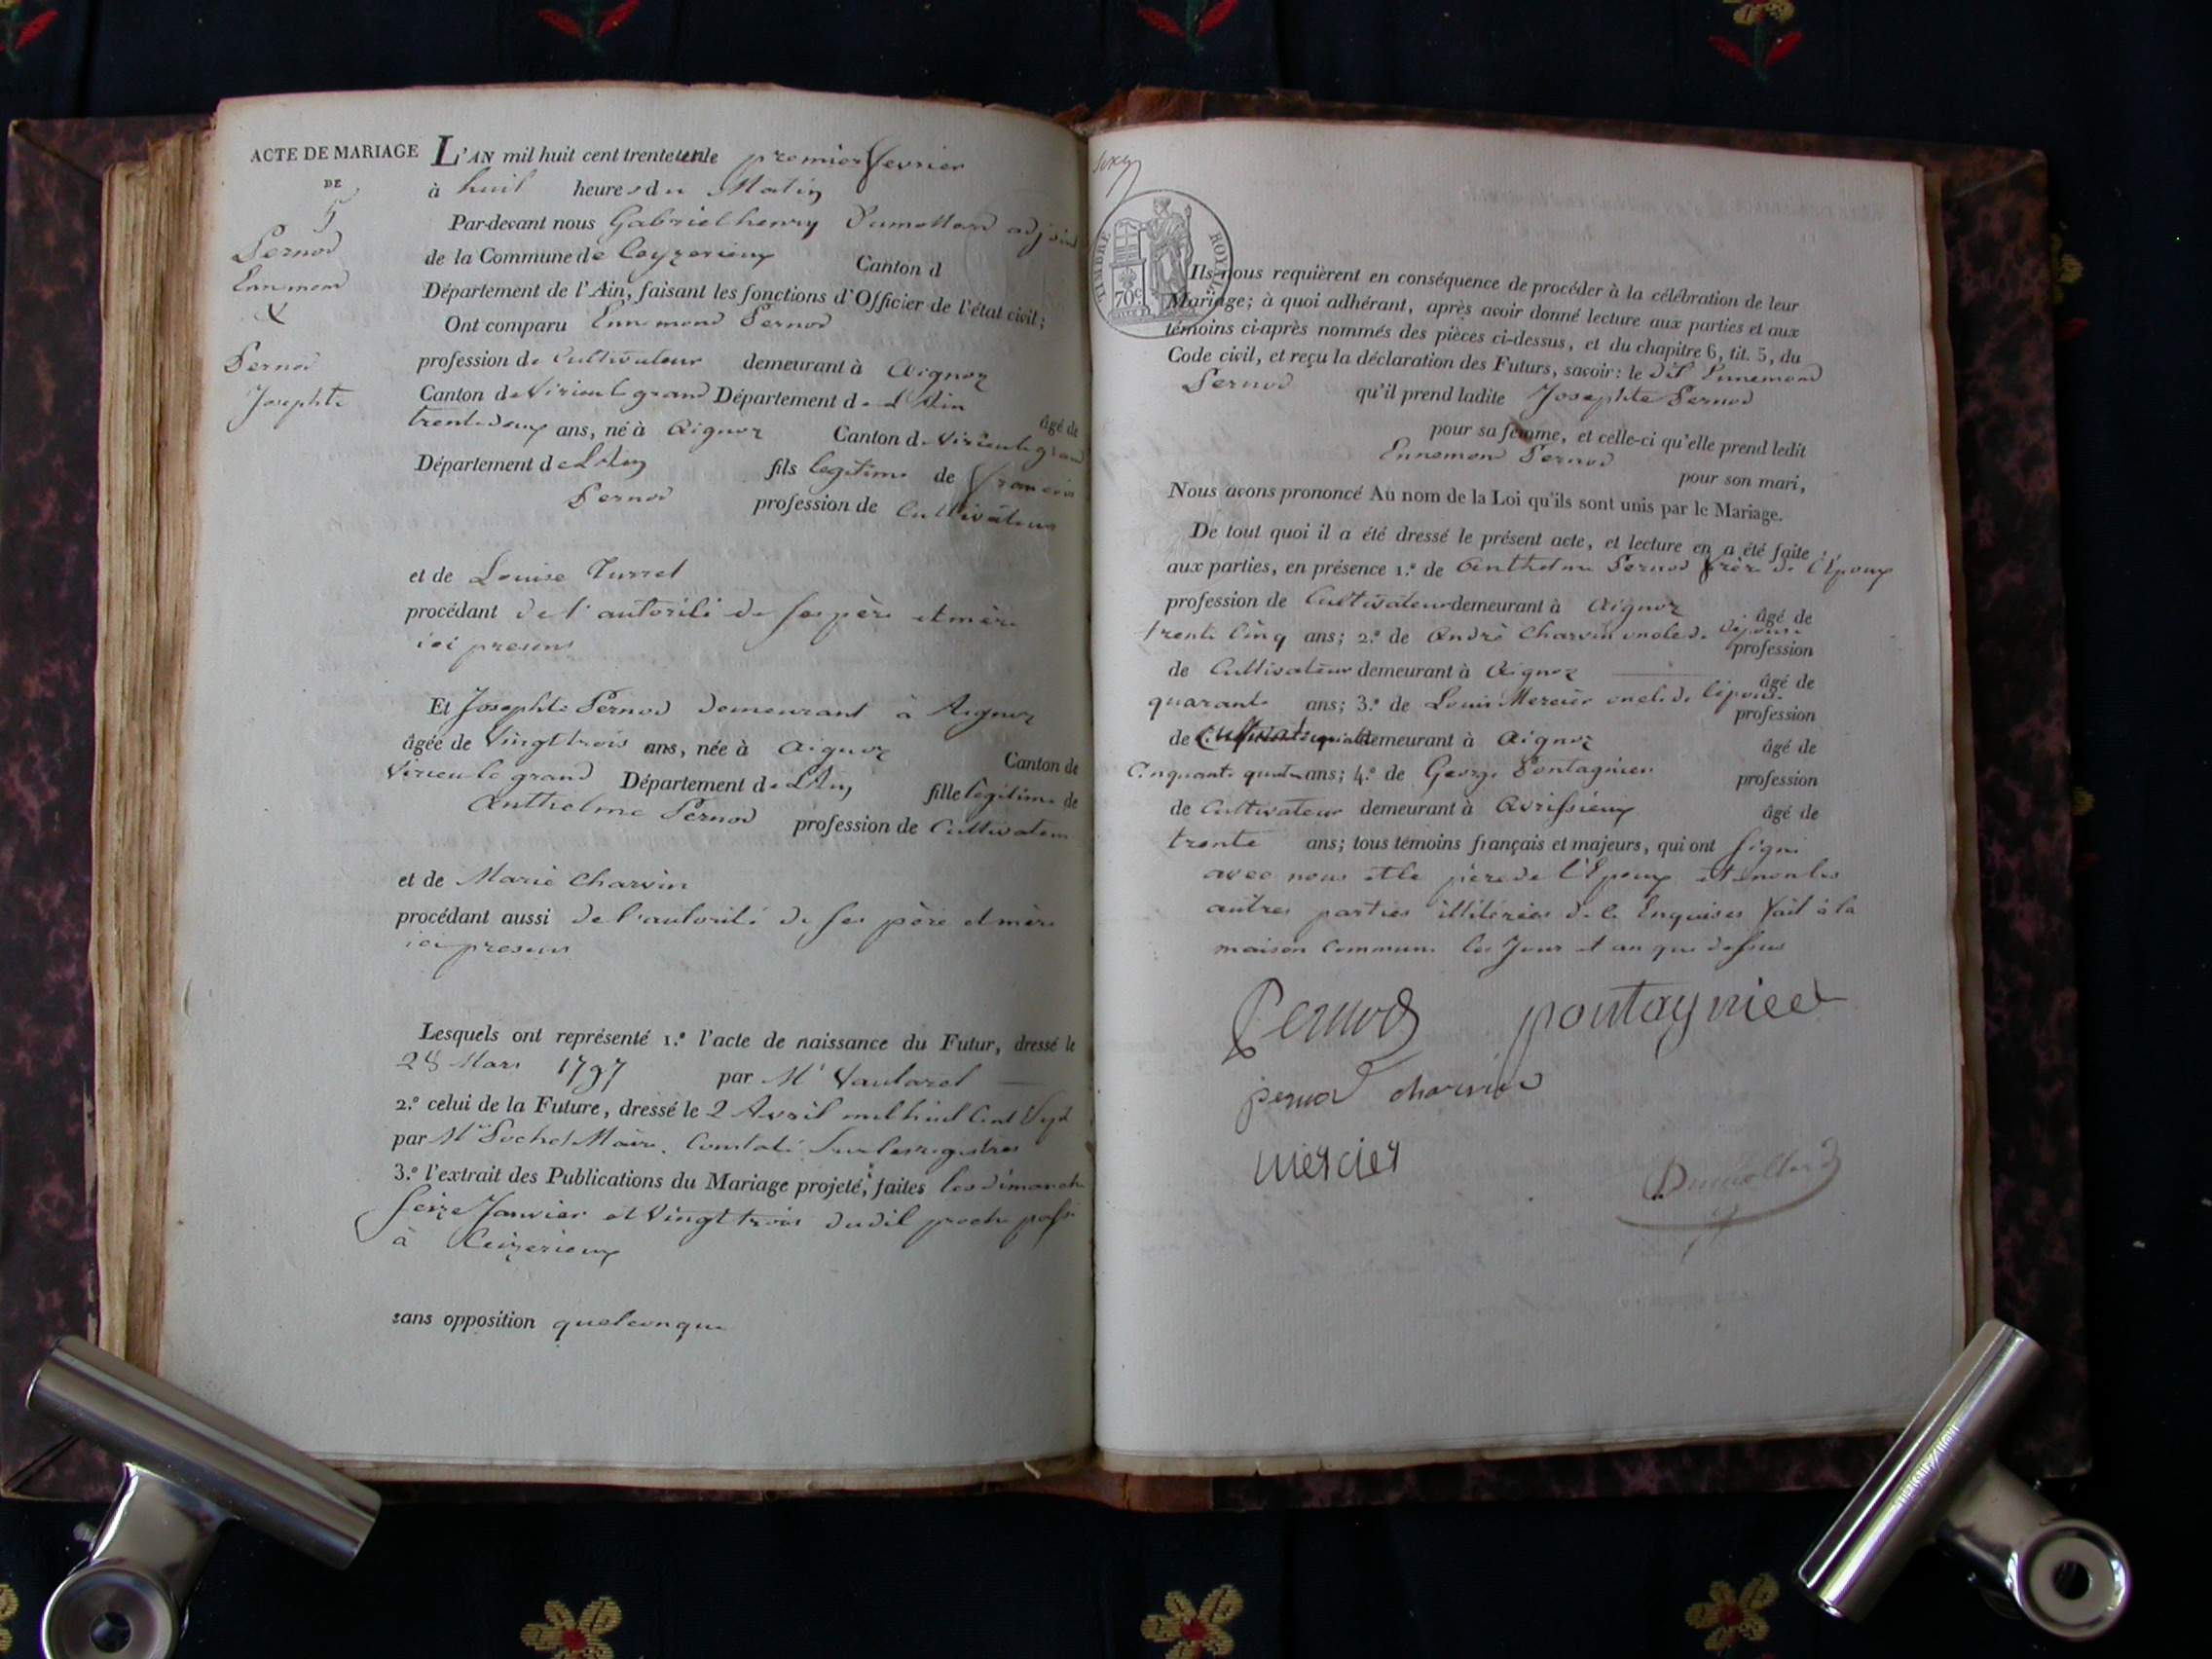 ACTE DE MARIAGE
DE
5
Pernod
Ennemond
&
Pernod
Josephte
L'AN mil huit cent trente et un le premier fevrier
à huit heures du Matin
Par-devant nous Gabriel henry Dumollard adjoint
de la Commune de Ceyzerieux Canton d
Département de l'Ain, faisant les fonctions d'Officier de l'état civil;
Ont comparu Ennemond Pernod
profession de Cultivateur demeurant à Aignoz
Canton de Virieu le grand Département de l'Ain âgé de
trente deux ans, né à Aignoz Canton de Virieu le grand
Département de L'Ain fils legitime de francois
Pernod profession de Cultivateur
et de Louise Turrel
procédant de l'autorité de ses père et mère
ici presens
Et Josephte Pernod demeurant à Aignoz
âgée de Vingt trois ans, née à Aignoz Canton de
Virieu le grand Département de L'Ain fille legitime de
Anthelme Pernod profession de Cultivateur
et de Marie Charvin
procédant aussi de l'autorité de ses père et mère
ici presens
Lesquels ont représenté 1.º l'acte de naissance du Futur, dressé le
28 Mars 1797 par Mr
2.º celui de la Future, dressé le 2 Avril mil huit Cent Sept
par Mr Maire. Constaté Sur les registres
3.º l'extrait des Publications du Mariage projeté, faites les dimanche
seize Janvier et Vingt trois dudit proche passé
à Ceizerieux
sans opposition quelconque
TIMBRE ROYAL
70c
Ils nous requièrent en conséquence de procéder à la célébration de leur
Mariage; à quoi adhérant, après avoir donné lecture aux parties et aux
témoins ci-après nommés des pièces ci-dessus, et du chapitre 6, tit. 5, du
Code civil, et reçu la déclaration des Futurs, savoir: le dit Ennemond
Pernod qu'il prend ladite Josephte Pernod
pour sa femme, et celle-ci qu'elle prend ledit
Ennemond Pernod pour son mari,
Nous avons prononcé Au nom de la Loi qu'ils sont unis par le Mariage.
De tout quoi il a été dressé le présent acte, et lecture en a été faite
aux parties, en présence 1.º de Anthelme Pernod frère de l'Epoux
profession de Cultivateur demeurant à Aignoz âgé de
trente Cinq ans; 2.º de André Charvin oncle de l'épouse profession
de Cultivateur demeurant à Aignoz âgé de
quarante ans; 3.º de Louis Mercier oncle de l'épouse profession
de demeurant à Aignoz âgé de
Cinquante quatre ans; 4.º de George Pontagnier profession
de Cultivateur demeurant à Avrissieux âgé de
trente ans; tous témoins français et majeurs, qui ont signé
avec nous et le père de l'Epoux et non les
autres parties illitérées de ce Enquises fait à la
maison Commune les Jour et an que dessus
Pernod pontagnier
pernod charvin
mercier
Dumollard